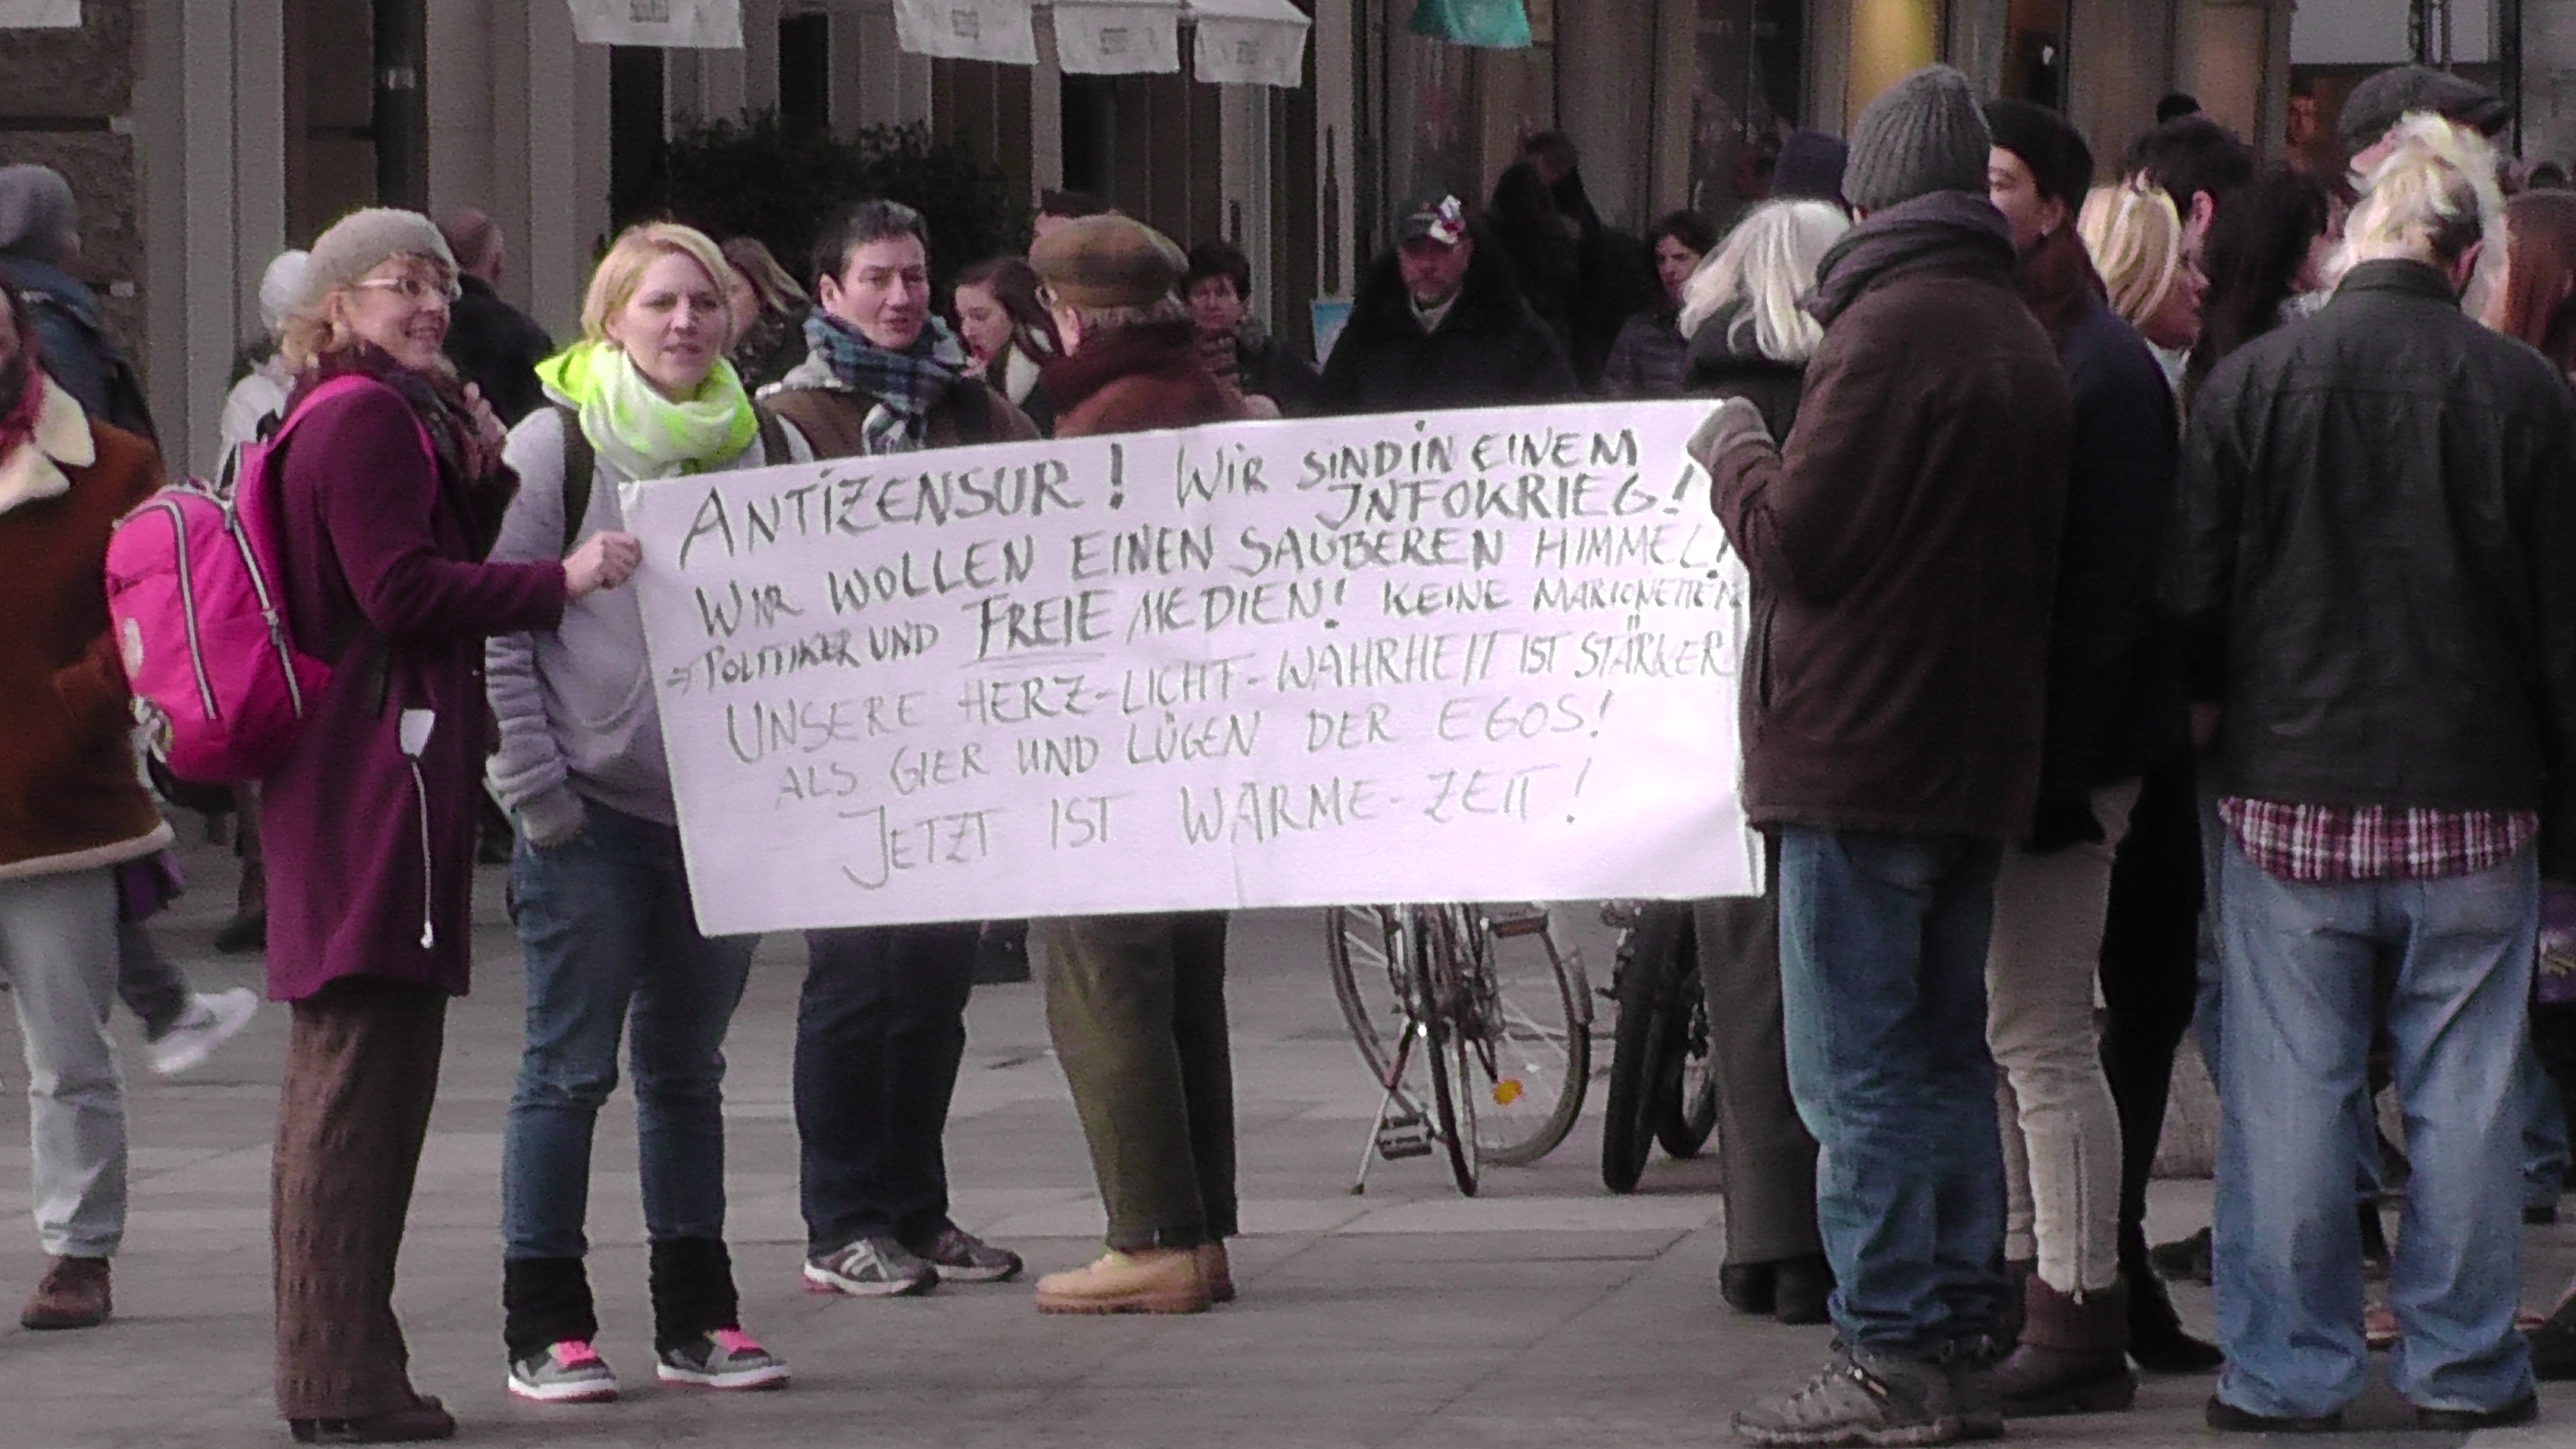 ANTIZENSUR! WIR SIND IN EINEM
INFOKRIEG!
WIR WOLLEN EINEN SAUBEREN HIMMEL!
KEINE MARIONETTEN
→ POLITIKER UND FREIE MEDIEN!
UNSERE HERZ-LICHT-WAHRHEIT IST STÄRKER
ALS GIER UND LÜGEN DER EGOS!
JETZT IST WARME-ZEIT!